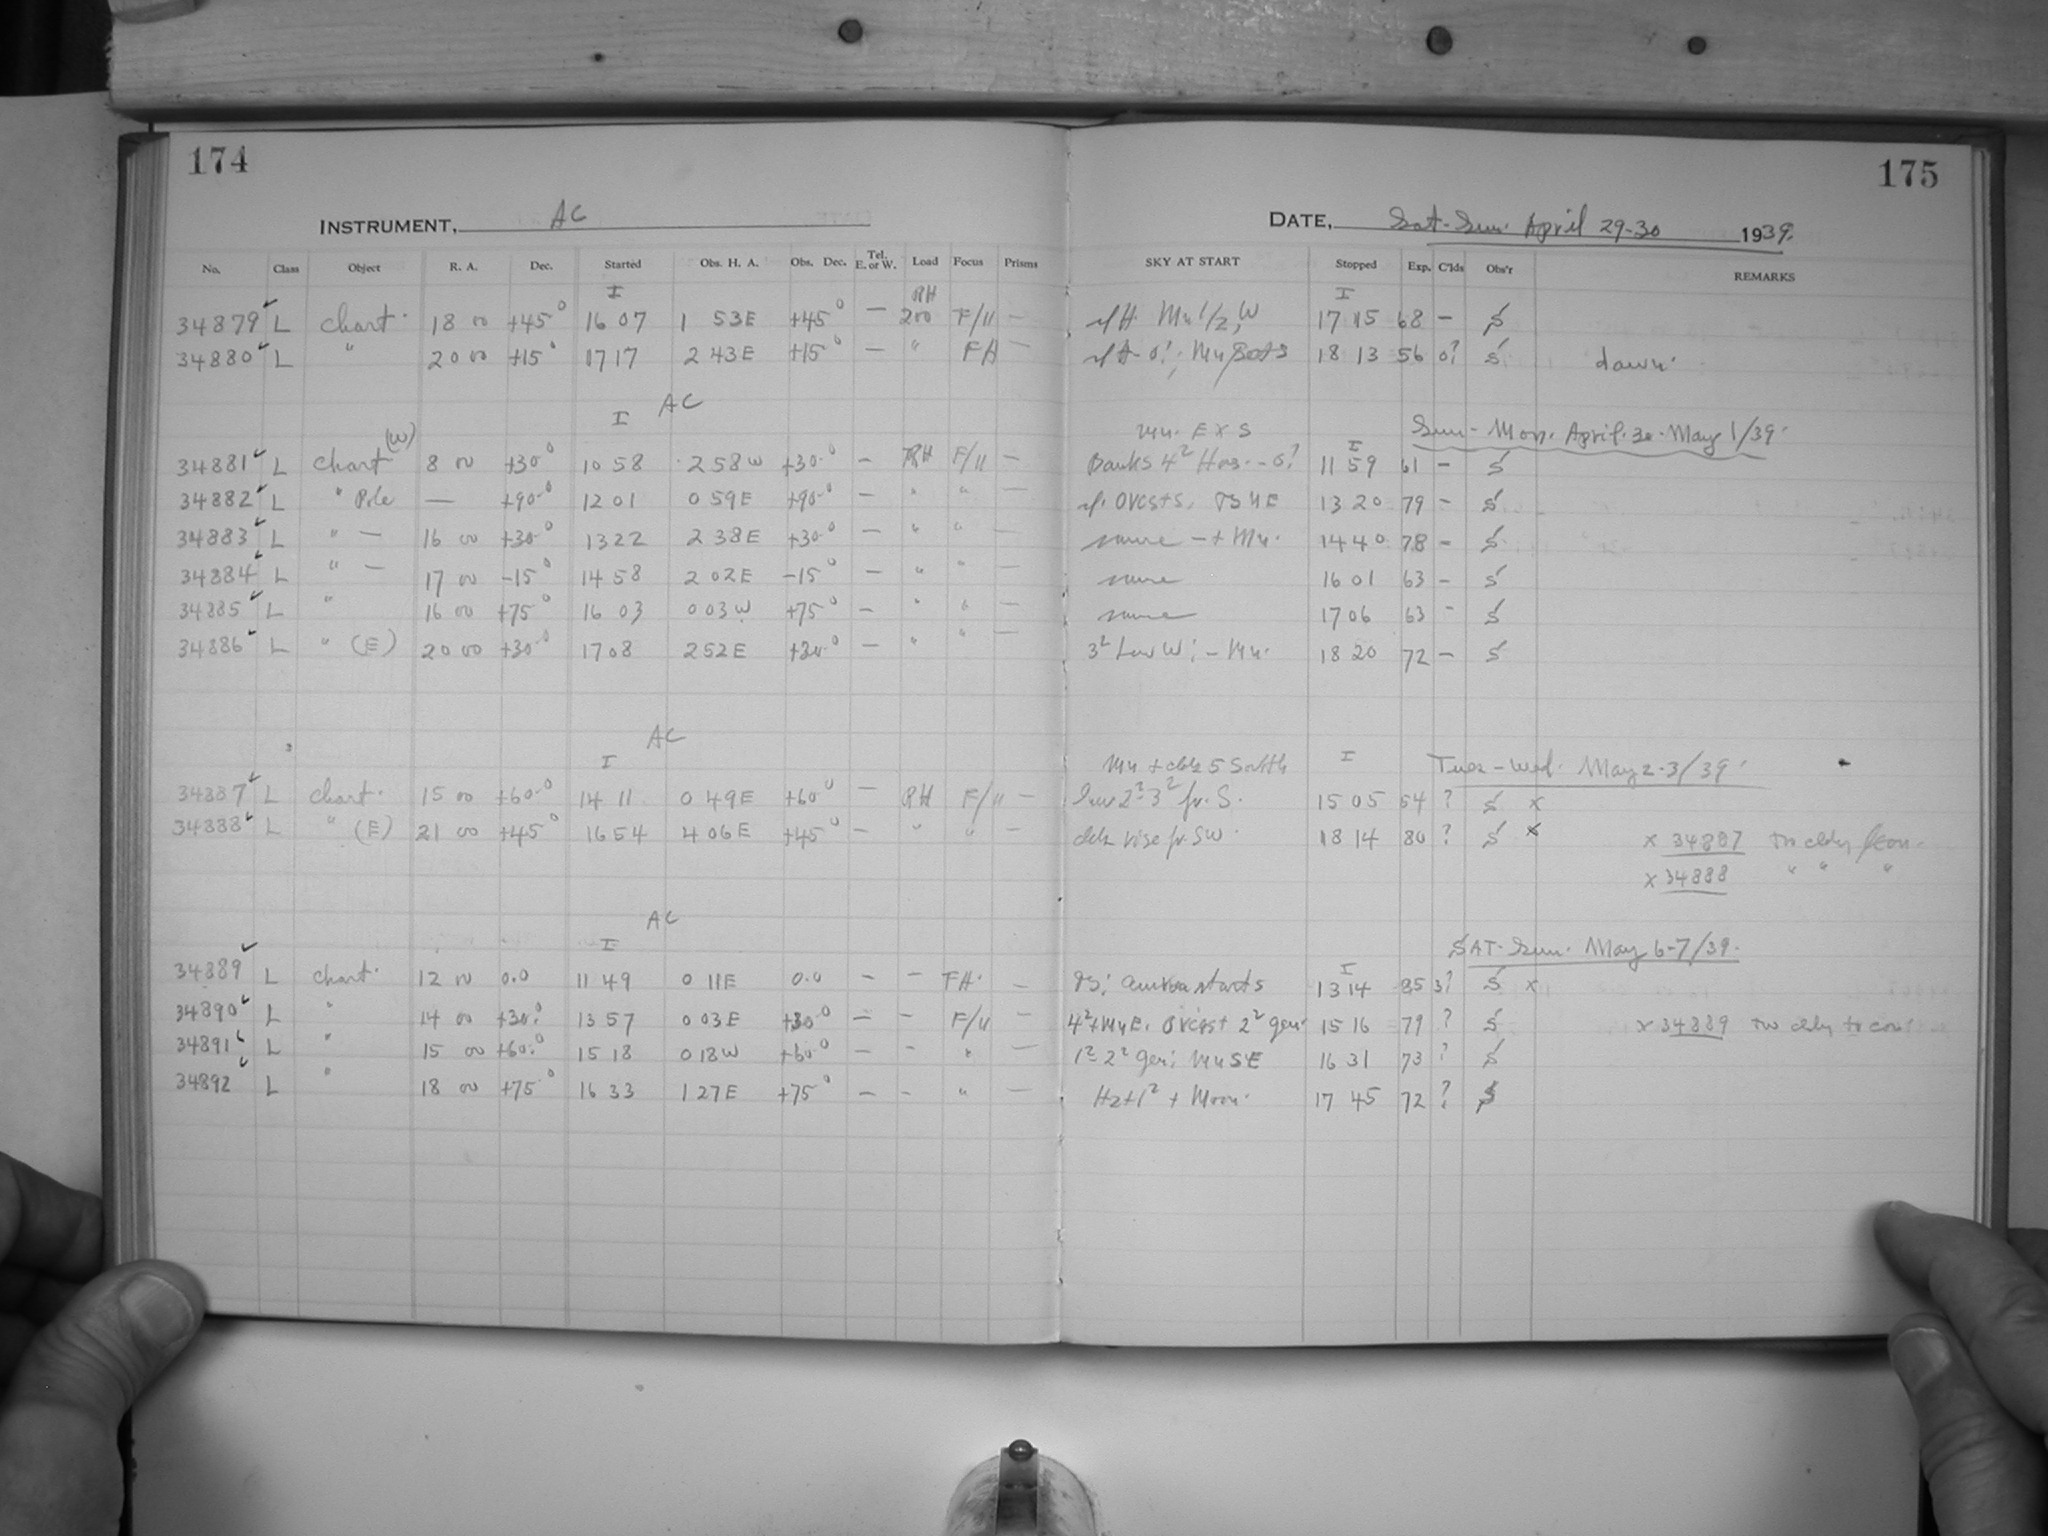 174
175
INSTRUMENT, AC
DATE, Sat-Sun. April 29-30 1939.
No. Class Object R. A. Dec. Started Obs. H. A. Obs. Dec. Tel. E. or W. Load Focus Prisms SKY AT START Stopped Exp. C'lds Obs'r REMARKS
I RH I
34879 L chart. 18 00 +45° 16 07 1 53E +45° — 200 F/11 — Mn 1/2, W 17 15 68 — S
34880 L " 20 00 +15° 17 17 2 43E +15° — " FH — 18 13 56 0? S dawn.
I AC Mn. E & S I Sun-Mon. April.30-May 1/39.
34881 L chart (W) 8 00 +30.0 10 58 2 58W +30.0 — RH F/11 — Banks 4² 11 59 61 — S
34882 L " Pole — +90.0 12 01 0 59E +90.0 — " " — 13 20 79 — S
34883 L " — 16 00 +30.0 13 22 2 38E +30.0 — " " — same — + Mn. 14 40 78 — S
34884 L " — 17 00 -15° 14 58 2 02E -15° — " " — same 16 01 63 — S
34885 L " 16 00 +75° 16 03 0 03W +75° — " " — same 17 06 63 - S
34886 L " (E) 20 00 +30.0 17 08 2 52E +30.0 — " " — 3² Low W; — Mn. 18 20 72 — S
AC
I Mn + clds S South I Tues-Wed. May 2-3/39.
34887 L chart. 15 00 +60.0 14 11 0 49E +60° — RH F/11 — 2²-3² fr. S. 15 05 54 ? S x
34888 L " (E) 21 00 +45° 16 54 4 06E +45° — " " — clds rise fr SW. 18 14 80 ? S x x 34887 too cldy
x 34888 " " "
AC
I I SAT-Sun. May 6-7/39.
34889 L chart. 12 00 0.0 11 49 0 11E 0.0 — — FH. — aurora starts 13 14 85 3? S x
34890 L " 14 00 +30.0 13 57 0 03E +30.0 — — F/11 — 4²+Mn E. Ovcast 2² gen. 15 16 79 ? S x 34889 too cldy to
34891 L " 15 00 +60.0 15 18 0 18W +60.0 — — " — 1²-2² gen; Mn SE 16 31 73 ? S
34892 L " 18 00 +75.0 16 33 1 27E +75° — — " — Hz+1² + Moon. 17 45 72 ? S